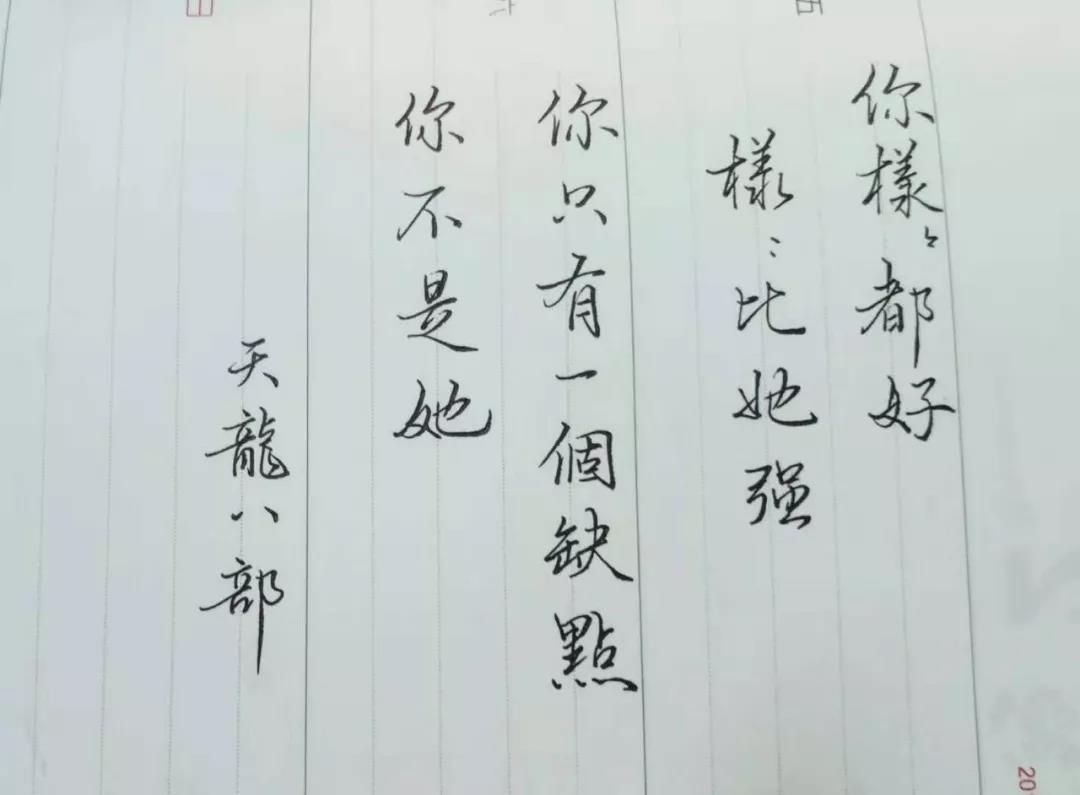 你樣々都好
樣〻比她强
你只有一個缺點
你不是她
天龍八部
五
六
日
20